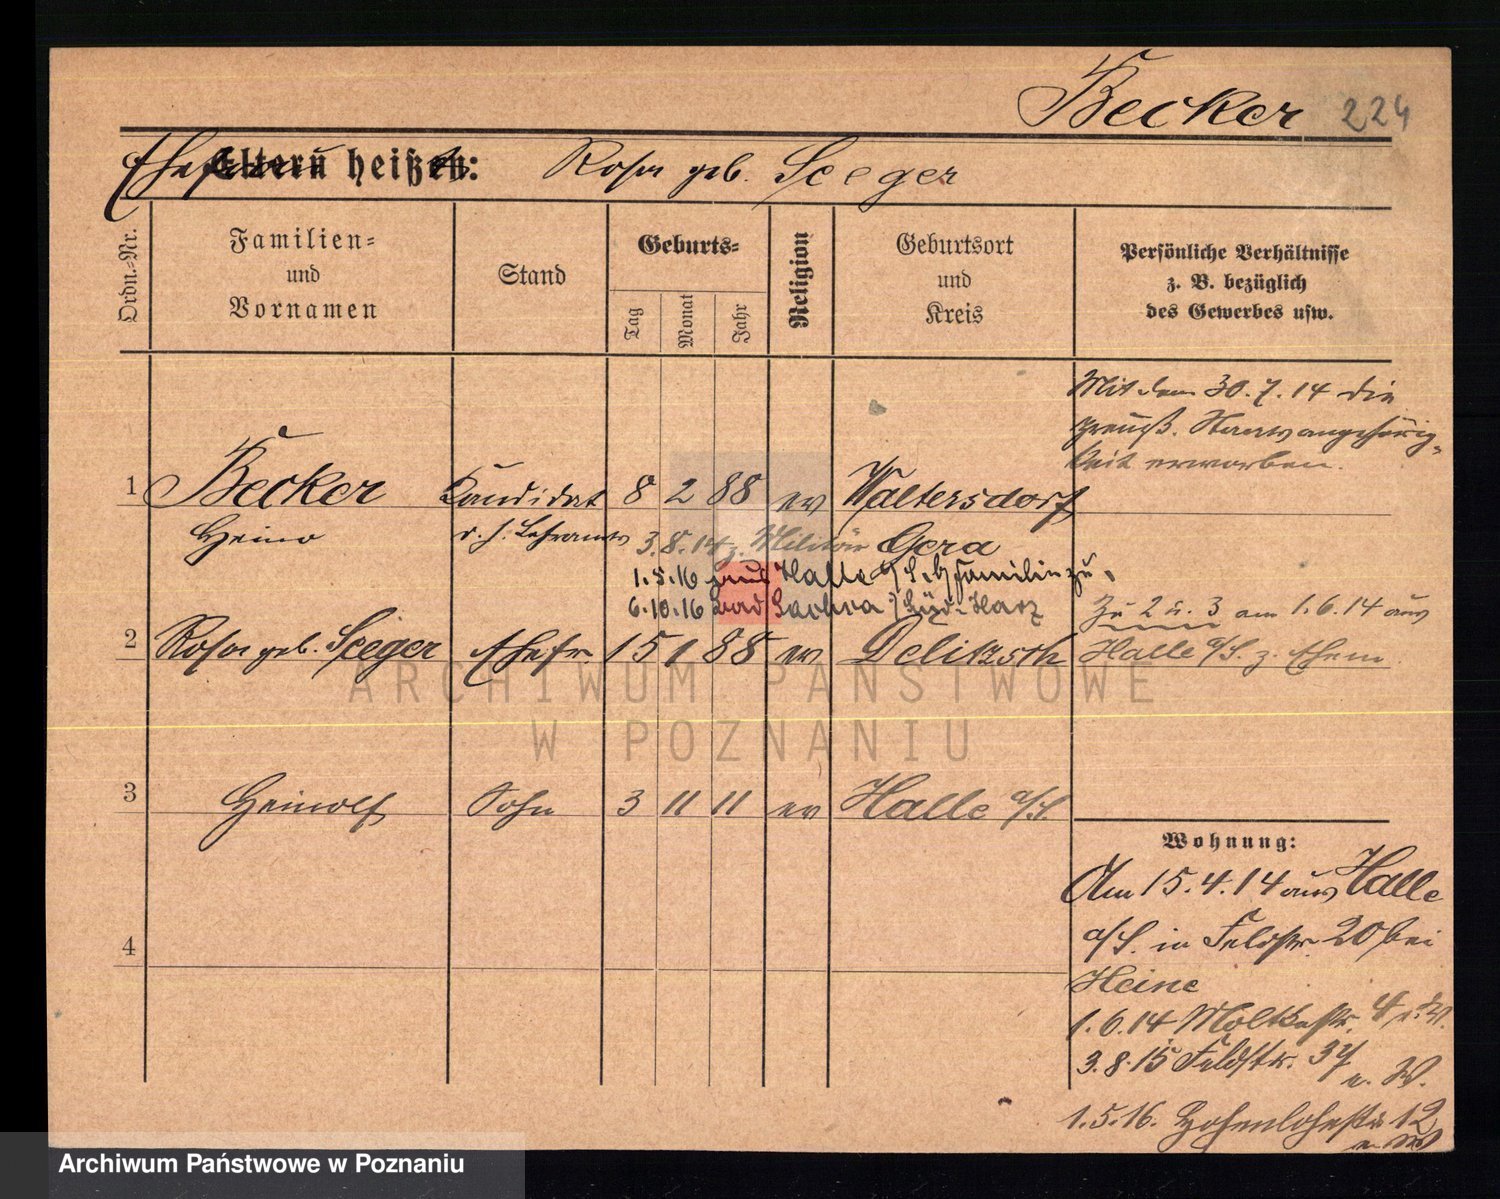 Becker 224
Eltern heißen: Rosa geb. Seeger
Ordn.-Nr.
Familien-
und
Vornamen
Stand
Geburts-
Tag
Monat
Jahr
Religion
Geburtsort
und
Kreis
Persönliche Verhältnisse
z. B. bezüglich
des Gewerbes usw.
Mit dem 30.7.14 die
preuß. Staatsangehörig-
keit erworben.
1 Becker Kandidat 8 2 88 ev Waltersdorf
Heino d. h. Lehramts 3.8.14 z. Militär Gera
1.5.16 aus Halle a/S. b/Familie zu.
6.10.16 Bad Sachsa / Süd-Harz
Zu 2 u. 3 am 1.6.14 aus
2 Rosa geb. Seeger Ehefr. 15 1 88 ev Delitzsch Halle a/S. z. Ehem.
3 Heinolf Sohn 3 11 11 ev Halle a/S.
4
Wohnung:
Am 15.4.14 aus Halle
a/S. in Feldstr. 20 bei
Heine
1.6.14 Moltkestr. 4 e. W.
3.8.15 Feldstr. 37
e. W.
1.5.16. Hohenlohestr 12
e. W
ARCHIWUM PAŃSTWOWE
W POZNANIU
Archiwum Państwowe w Poznaniu